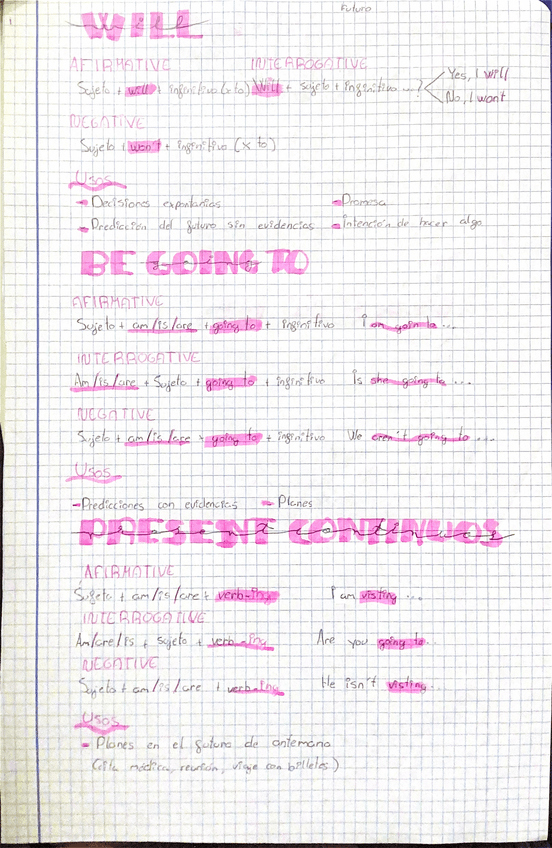 1
Futuro
WILL
will
AFIRMATIVE INTERROGATIVE
Sujeto + will + infinitivo (x to) Will + sujeto + infinitivo ...? Yes, I will
No, I wont
NEGATIVE
Sujeto + won't + infinitivo (x to)
Usos
- Decisiones expontanias - Promesa
- Predicción del futuro sin evidencias - Intención de hacer algo
BE GOING TO
going
AFIRMATIVE
Sujeto + am/is/are + going to + infinitivo I am going to ...
INTERROGATIVE
Am/is/are + Sujeto + going to + infinitivo Is she going to ...
NEGATIVE
Sujeto + am/is/are + going to + infinitivo We aren't going to ...
Usos
- Predicciones con evidencias - Planes
PRESENT CONTINUOS
present continuos
AFIRMATIVE
Sujeto + am/is/are + verb-ing I am visting ...
INTERROGATIVE
Am/are/is + sujeto + verb-ing Are you going to...
NEGATIVE
Sujeto + am/is/are + verb-ing He isn't visting...
Usos
- Planes en el futuro de antemano
(cita médica, reunión, viaje con billetes)